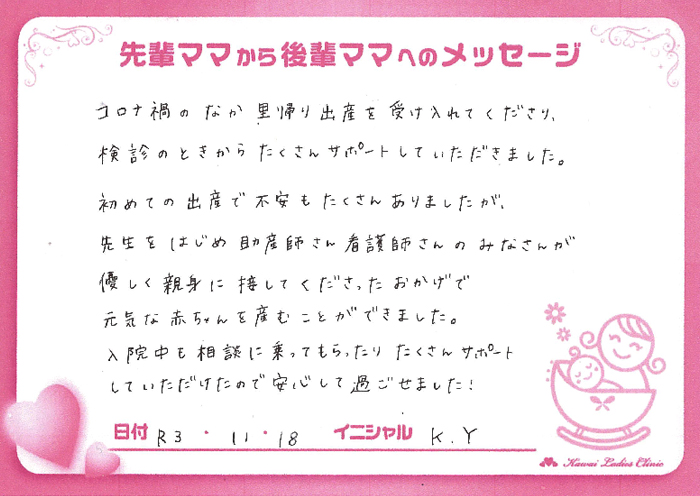 先輩ママから後輩ママへのメッセージ
コロナ禍のなか里帰り出産を受け入れてくださり、
検診のときからたくさんサポートしていただきました。
初めての出産で不安もたくさんありましたが、
先生をはじめ助産師さん看護師さんのみなさんが
優しく親身に接してくださったおかげで
元気な赤ちゃんを産むことができました。
入院中も相談に乗ってもらったりたくさんサポート
していただけたので安心して過ごせました!
日付 R3・11・18 イニシャル K.Y
Kawai Ladies Clinic